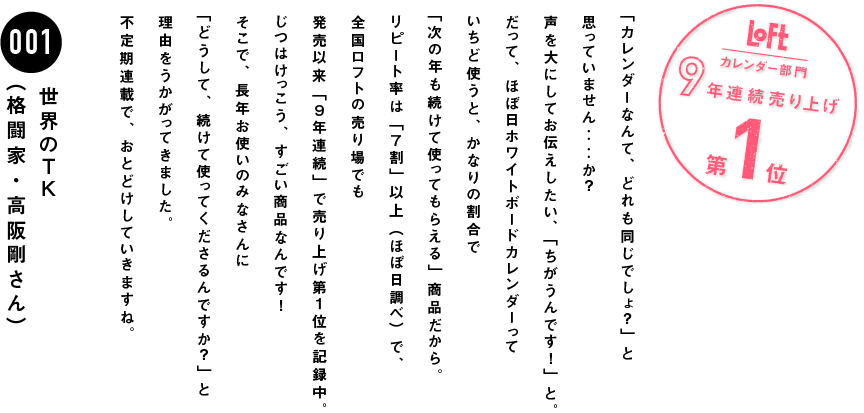 LOFT
カレンダー部門
9年連続売り上げ
第1位
「カレンダーなんて、どれも同じでしょ？」と
思っていません・・・・か？
声を大にしてお伝えしたい、「ちがうんです！」と。
だって、ほぼ日ホワイトボードカレンダーって
いちど使うと、かなりの割合で
「次の年も続けて使ってもらえる」商品だから。
リピート率は「７割」以上（ほぼ日調べ）で、
全国ロフトの売り場でも
発売以来「９年連続」で売り上げ第１位を記録中。
じつはけっこう、すごい商品なんです！
そこで、長年お使いのみなさんに
「どうして、続けて使ってくださるんですか？」と
理由をうかがってきました。
不定期連載で、おとどけしていきますね。
001
世界のＴＫ
（格闘家・高阪剛さん）